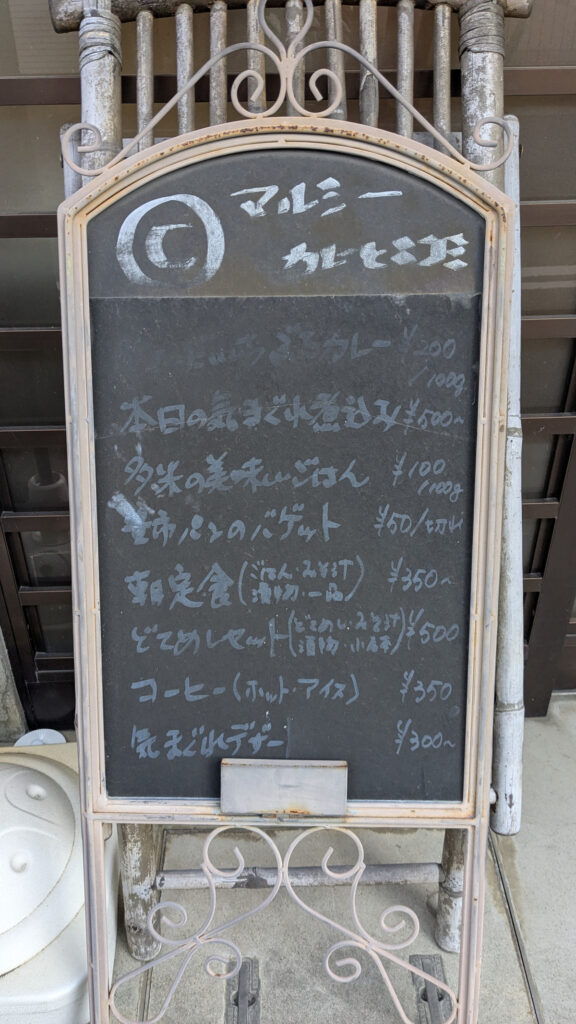 C マルシー
カレと ニコミ
カレー ¥200
/100g
本日の気まぐれ煮込み ¥500~
多米の美味しいごはん ¥100
/100g
パンのバゲット ¥50/切れ
朝定食(ごはん・みそ汁 漬物・一品) ¥350~
どてめしセット(どてめし・みそ汁 漬物・小鉢) ¥500
コーヒー(ホット・アイス) ¥350
気まぐれデザー ¥300~